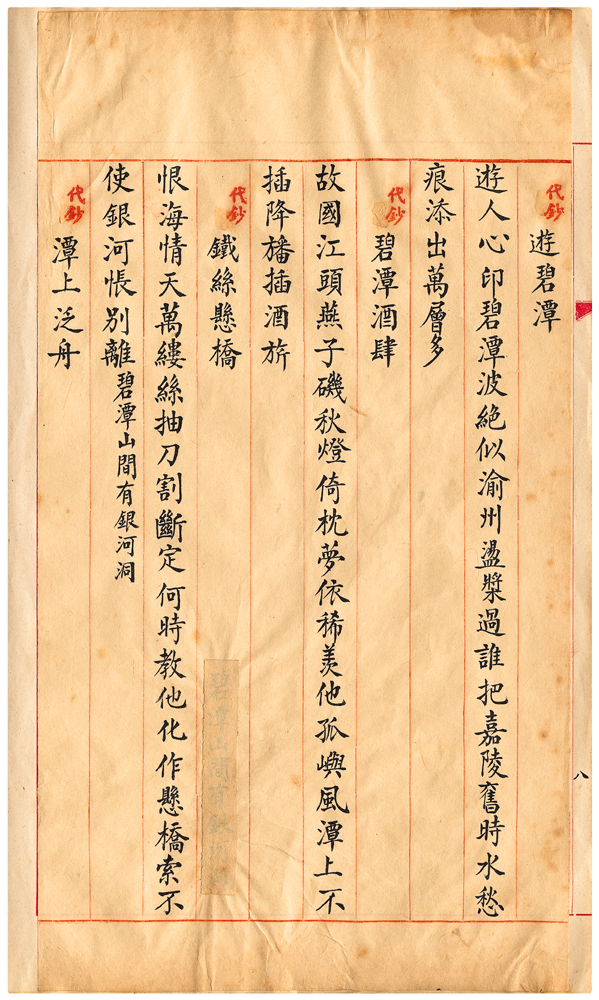 代鈔
遊碧潭
遊人心印碧潭波絶似渝州盪槳過誰把嘉陵舊時水愁
痕添出萬層多
代鈔
碧潭酒肆
故國江頭燕子磯秋燈倚枕夢依稀羨他孤嶼風潭上不
插降旛插酒旂
代鈔
鐵絲懸橋
恨海情天萬縷絲抽刀割斷定何時教他化作懸橋索不
使銀河悵别離碧潭山間有銀河洞
代鈔
潭上泛舟
八